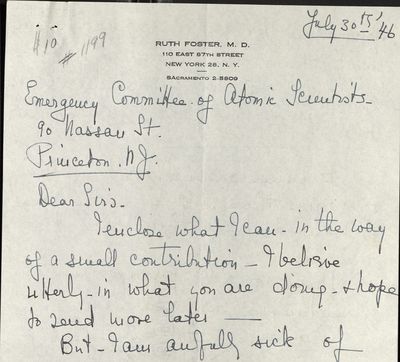 July 30th, '46
$10
# 1199
RUTH FOSTER, M. D.
110 EAST 87TH STREET
NEW YORK 28, N. Y.
SACRAMENTO 2-5809
Emergency Committee of Atomic Scientists-
90 Nassau St.
Princeton. N.J.
Dear Sirs-
I enclose what I can - in the way
of a small contribution - I believe
utterly - in what you are doing - & hope
to send more later —
But - I am awfully sick of